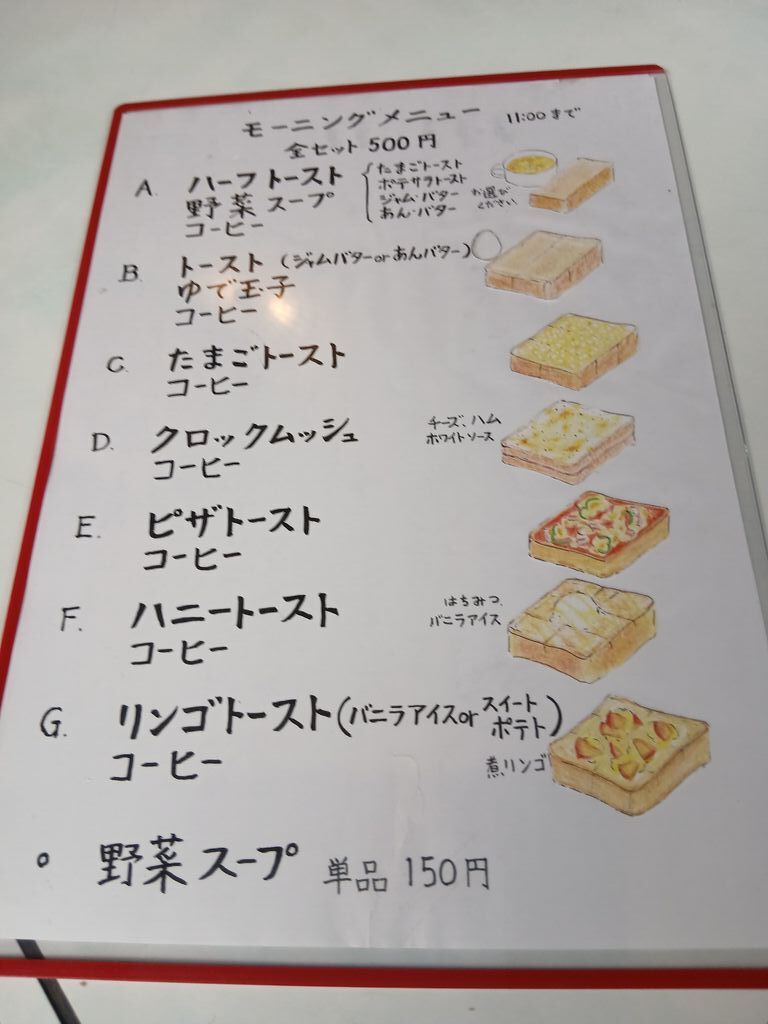 モーニングメニュー 11:00まで
全セット 500円
A. ハーフトースト
野菜スープ
コーヒー
たまごトースト
ポテサラトースト
ジャム・バター
あん・バター
お選び
ください
B. トースト (ジャムバターorあんバター)
ゆで玉子
コーヒー
C. たまごトースト
コーヒー
D. クロックムッシュ
コーヒー
チーズ、ハム
ホワイトソース
E. ピザトースト
コーヒー
F. ハニートースト
コーヒー
はちみつ、
バニラアイス
G. リンゴトースト(バニラアイスorスイート
ポテト)
コーヒー
煮リンゴ
。野菜スープ 単品 150円